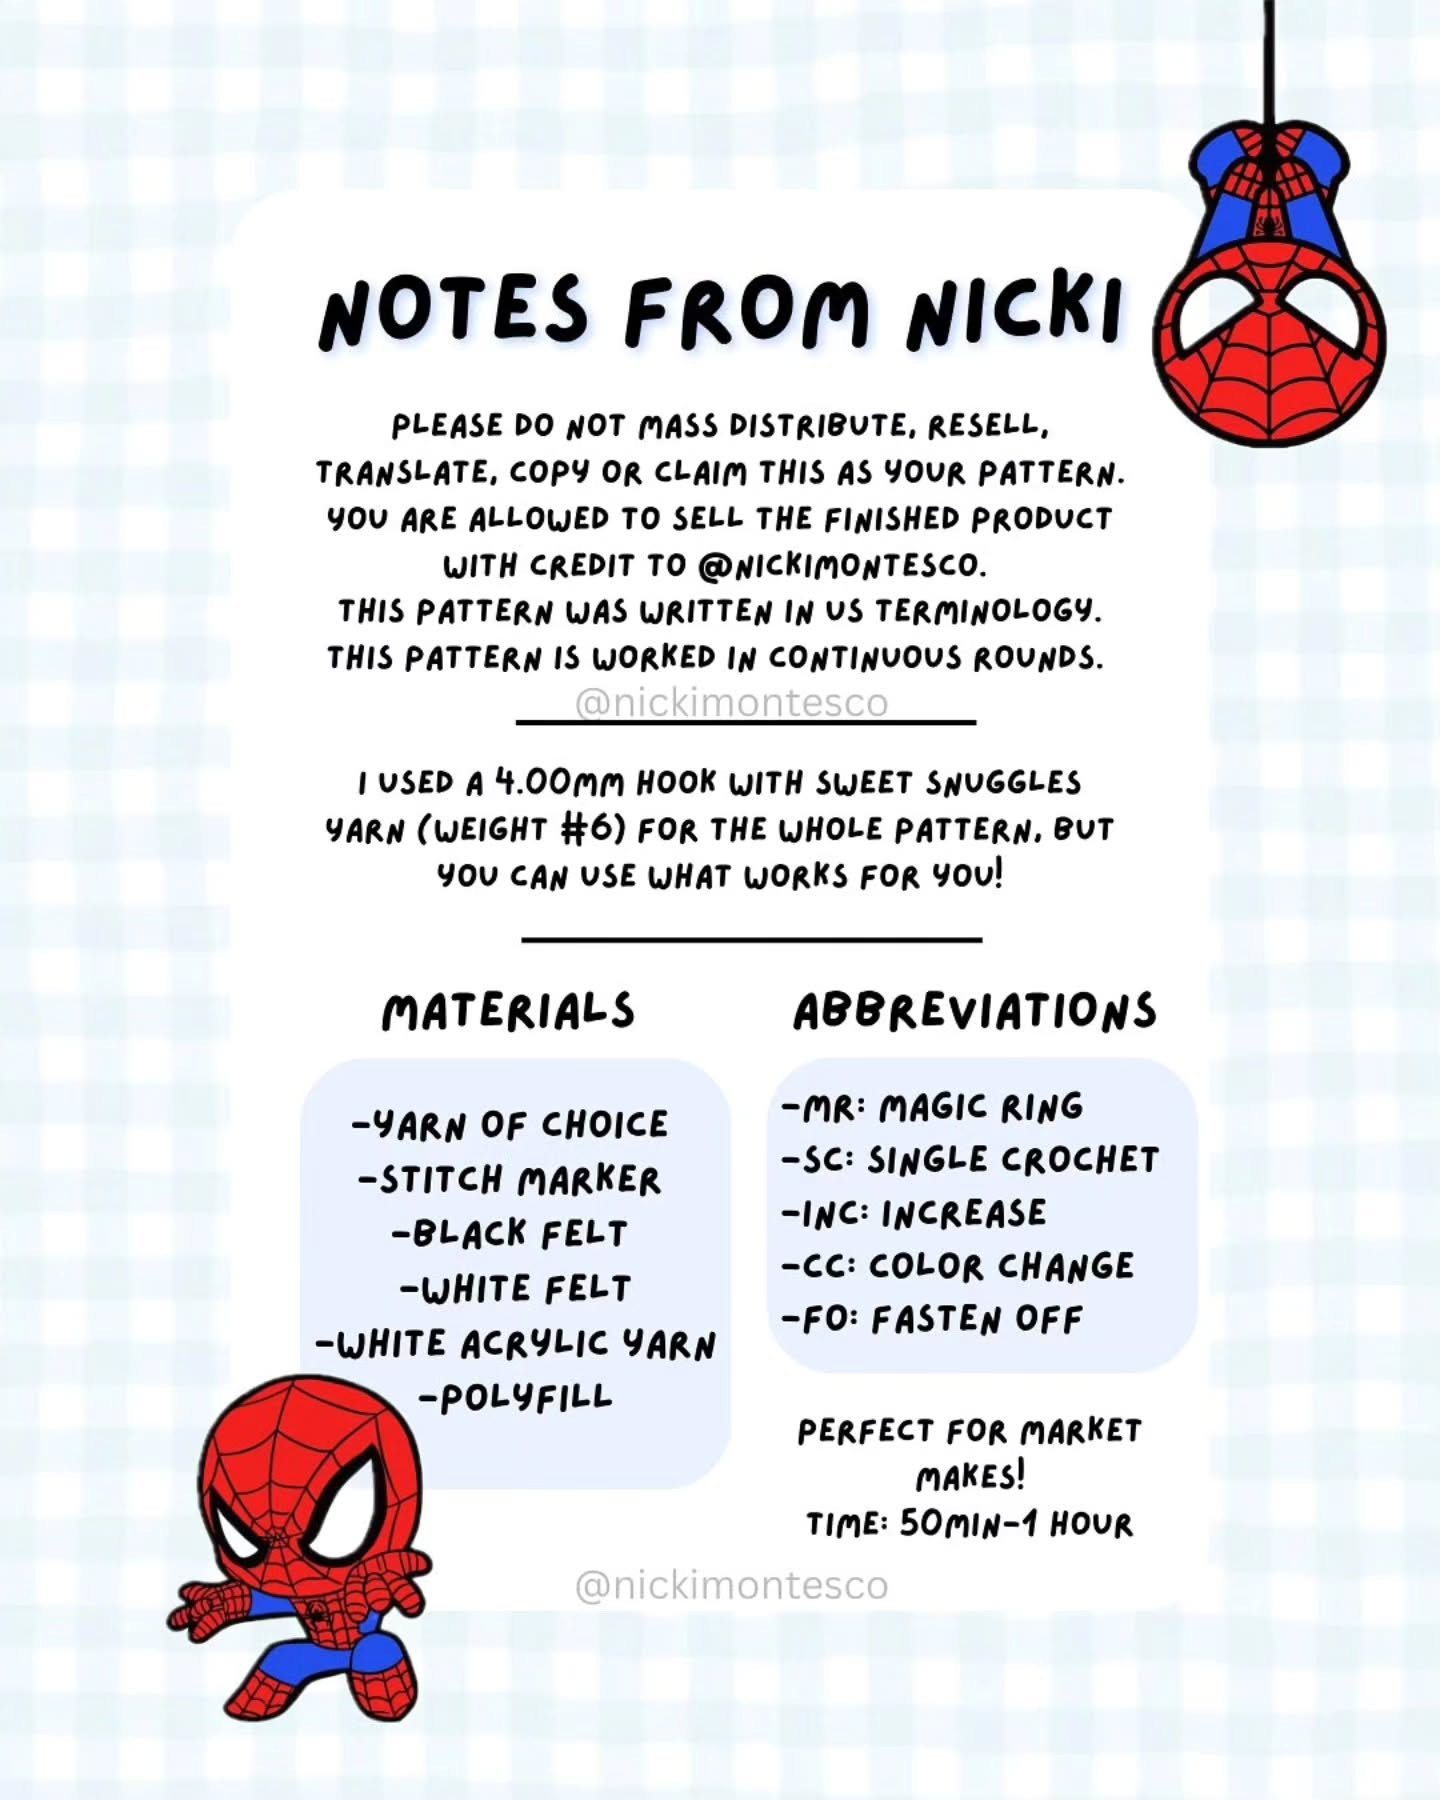 NOTES FROM NICKI
PLEASE DO NOT MASS DISTRIBUTE, RESELL,
TRANSLATE, COPY OR CLAIM THIS AS YOUR PATTERN.
YOU ARE ALLOWED TO SELL THE FINISHED PRODUCT
WITH CREDIT TO @NICKIMONTESCO.
THIS PATTERN WAS WRITTEN IN US TERMINOLOGY.
THIS PATTERN IS WORKED IN CONTINUOUS ROUNDS.
@nickimontesco
I USED A 4.00MM HOOK WITH SWEET SNUGGLES
YARN (WEIGHT #6) FOR THE WHOLE PATTERN, BUT
YOU CAN USE WHAT WORKS FOR YOU!
MATERIALS
-YARN OF CHOICE
-STITCH MARKER
-BLACK FELT
-WHITE FELT
-WHITE ACRYLIC YARN
-POLYFILL
ABBREVIATIONS
-MR: MAGIC RING
-SC: SINGLE CROCHET
-INC: INCREASE
-CC: COLOR CHANGE
-FO: FASTEN OFF
PERFECT FOR MARKET
MAKES!
TIME: 50MIN-1 HOUR
@nickimontesco